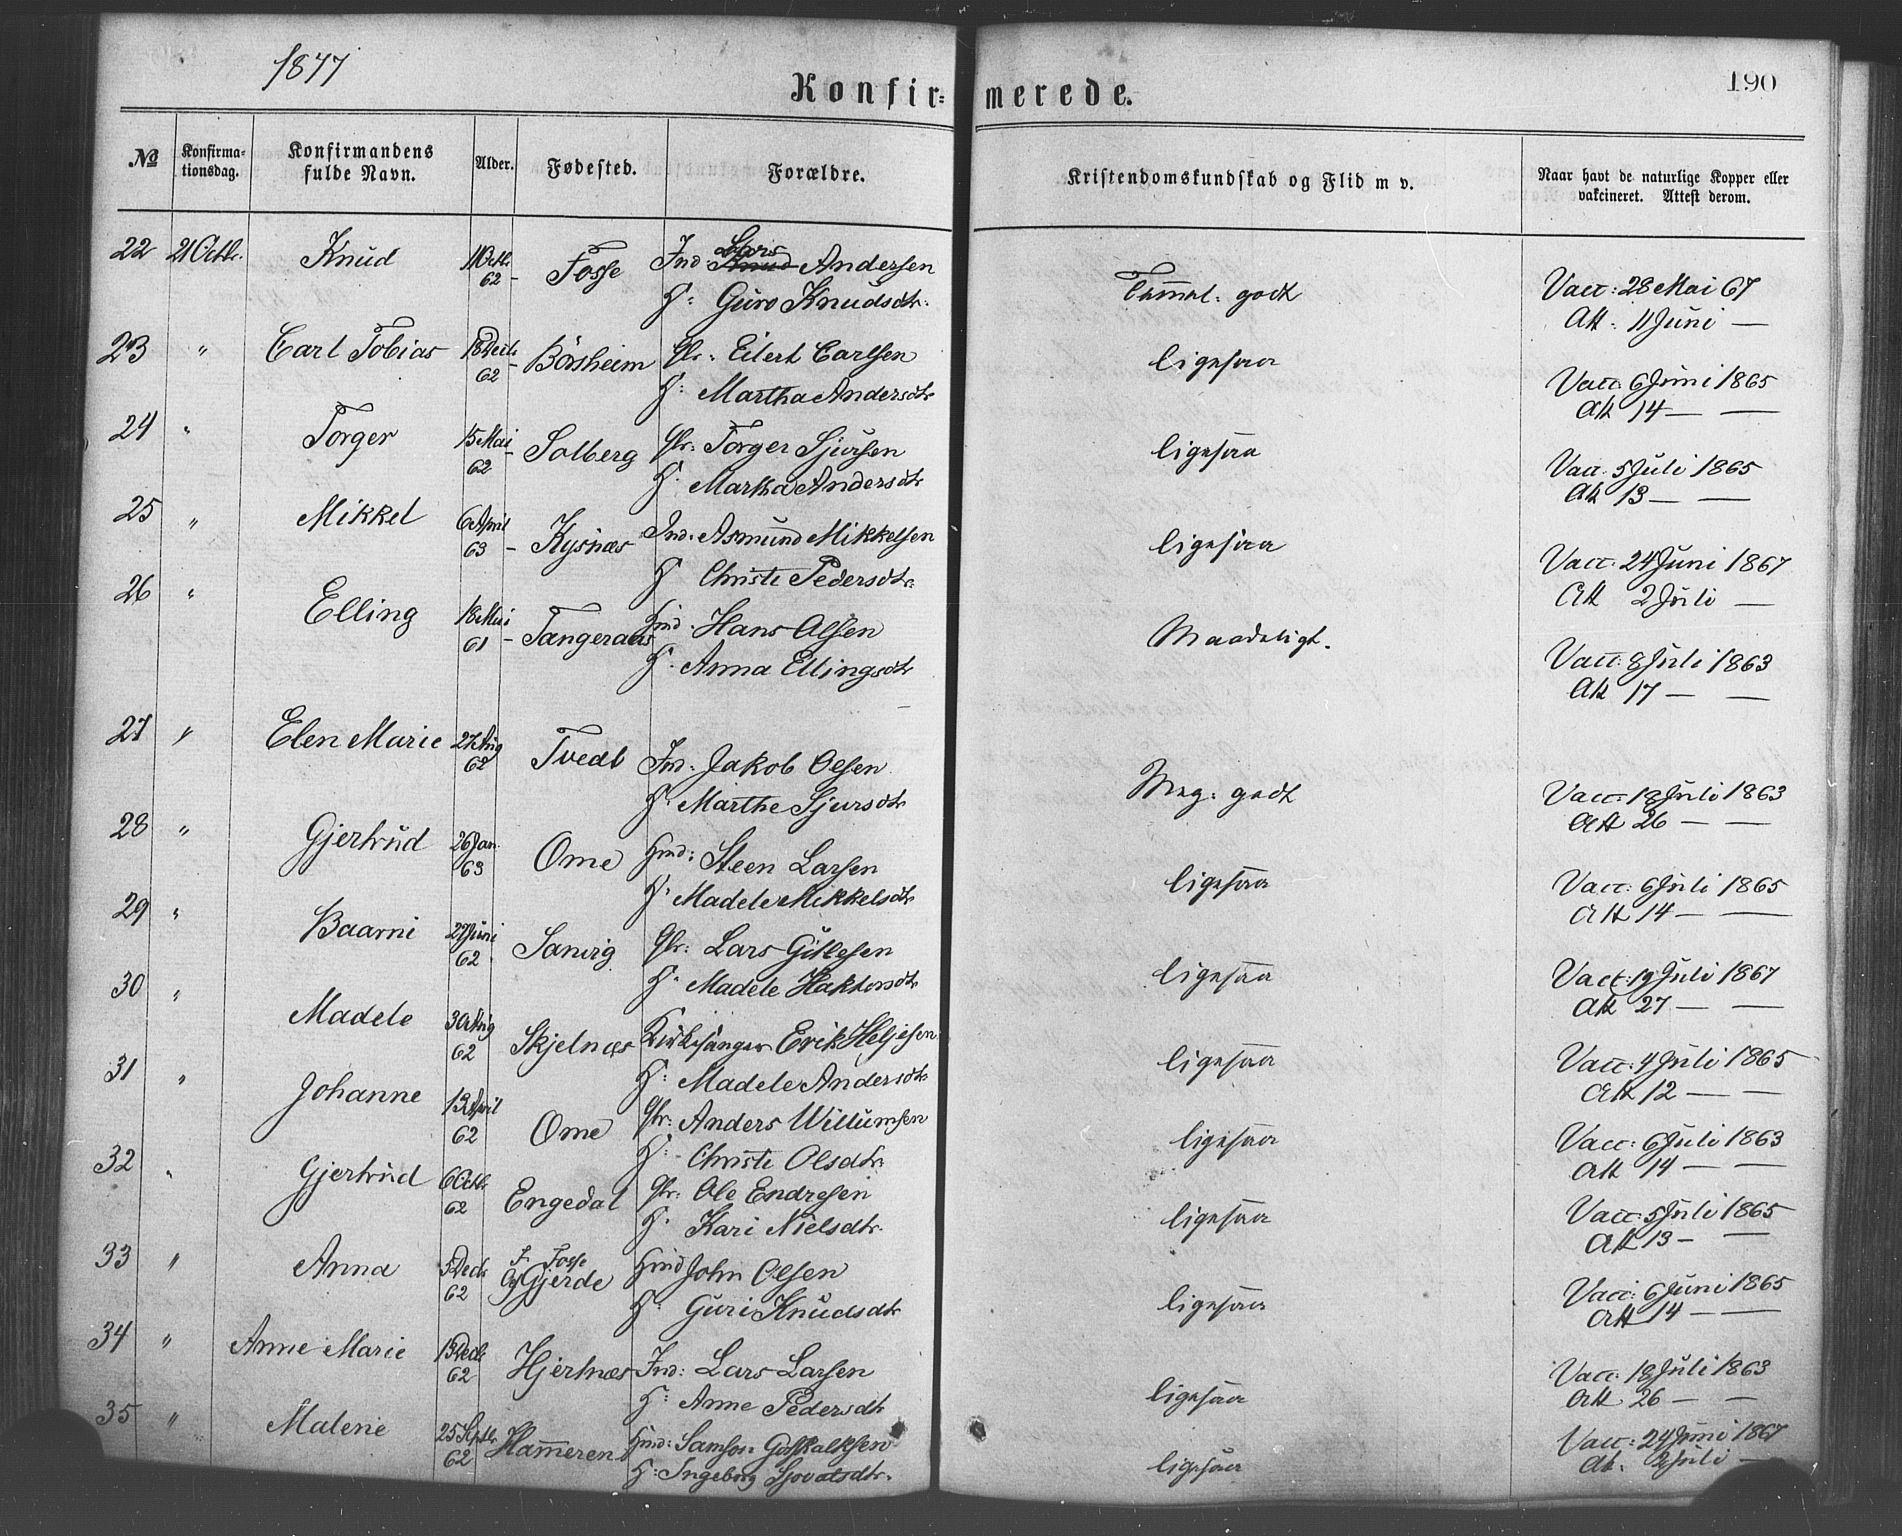 1877
Konfir= merede.
190
No
Konfirma-
tionsdag.
Konfirmandens
fulde Navn.
Alder.
Fødested.
Forældre.
Kristendomskundskab og Flid m v.
Naar havt de naturlige Kopper eller
vakcineret. Attest derom.
22 21 Octbr. Knud 11 Octb. 62 - Fosse Ind: Lars Knud Andersen
H: Guro Knudsdtr:
Tammel: godt
Vacc: 28 Mai 67
Att: 11 Juni —
23 " Carl Tobias 18 Decb. 62 - Börsheim Gbr: Eilert Carlsen
H: Martha Andersdtr
ligesaa
Vacc: 6 Juni 1865
Att 14 — —
24 " Torger 15 Mai 62 - Solberg Gbr: Torger Sjursen
H: Martha Andersdtr
ligesaa
Vacc. 5 Juli 1865
Att 13 — —
25 " Mikkel 6 April 63 - Kysnæs Ind. Asmund Mikkelsen
H Christi Pedersdtr.
ligesaa
Vacc: 24 Juni 1867
Att 2 Juli —
26 " Elling 18 Mai 61 - Tangeraas Hmd. Hans Olsen
H. Anna Ellingsdtr
Maadeligt.
Vacc: 8 Juli 1863
Att 17 — —
27 " Elen Marie 27 Aug 62 Tvedt Ind. Jakob Olsen
H. Marthe Sjursdtr
Meg: godt
Vacc: 18 Juli 1863
Att 26 — —
28 " Gjertrud 26 Jan. 63 Ome Hmd: Steen Larsen
H. Madele Mikkelsdtr
ligesaa
Vacc: 6 Juli 1865
Att 14 — —
29 " Baarni 27 Juni 62. Sanvig Gbr: Lars Gitlesen
H. Madele Haktorsdtr
ligesaa
Vact: 19 Juli 1867
Att 27 — —
30 " Madele 30 Aug 62 Skjelnæs Kirkesanger Erik Heljesen
H: Madele Andersdtr
ligesaa
Vacc: 4 Juli 1865
Att 12 — —
31 " Johanne 13 April 62 Ome Gbr: Anders Willumsen
H: Christi Olsdtr.
ligesaa
Vacc: 6 Juli 1863
Att 14 — —
32 " Gjertrud 6 Octb. 62 Engedal Gbr: Ole Endresen
H. Kari Nielsdtr.
ligesaa
Vacc: 5 Juli 1865
Att 13 — —
33 " Anna 5 Decb 62 F. Fosse
Og Gjerde Hmd John Olsen
H: Guri Knudsdtr
ligesaa
Vacc: 6 Juni 1865
Att 14 — —
34 " Anne Marie 13 Decb 62 Hjertnæs Ind: Lars Larsen
H: Anne Pedersdtr
ligesaa
Vacc 18 Juli 1863
Att 26 — —
35 " Malene 25 Septbr 62 Hammeren Hmd: Samson Gotskalksen
H: Ingeborg Sjovatsdtr.
ligesaa
Vacc: 24 Juni 1867
Att. 2 Juli —